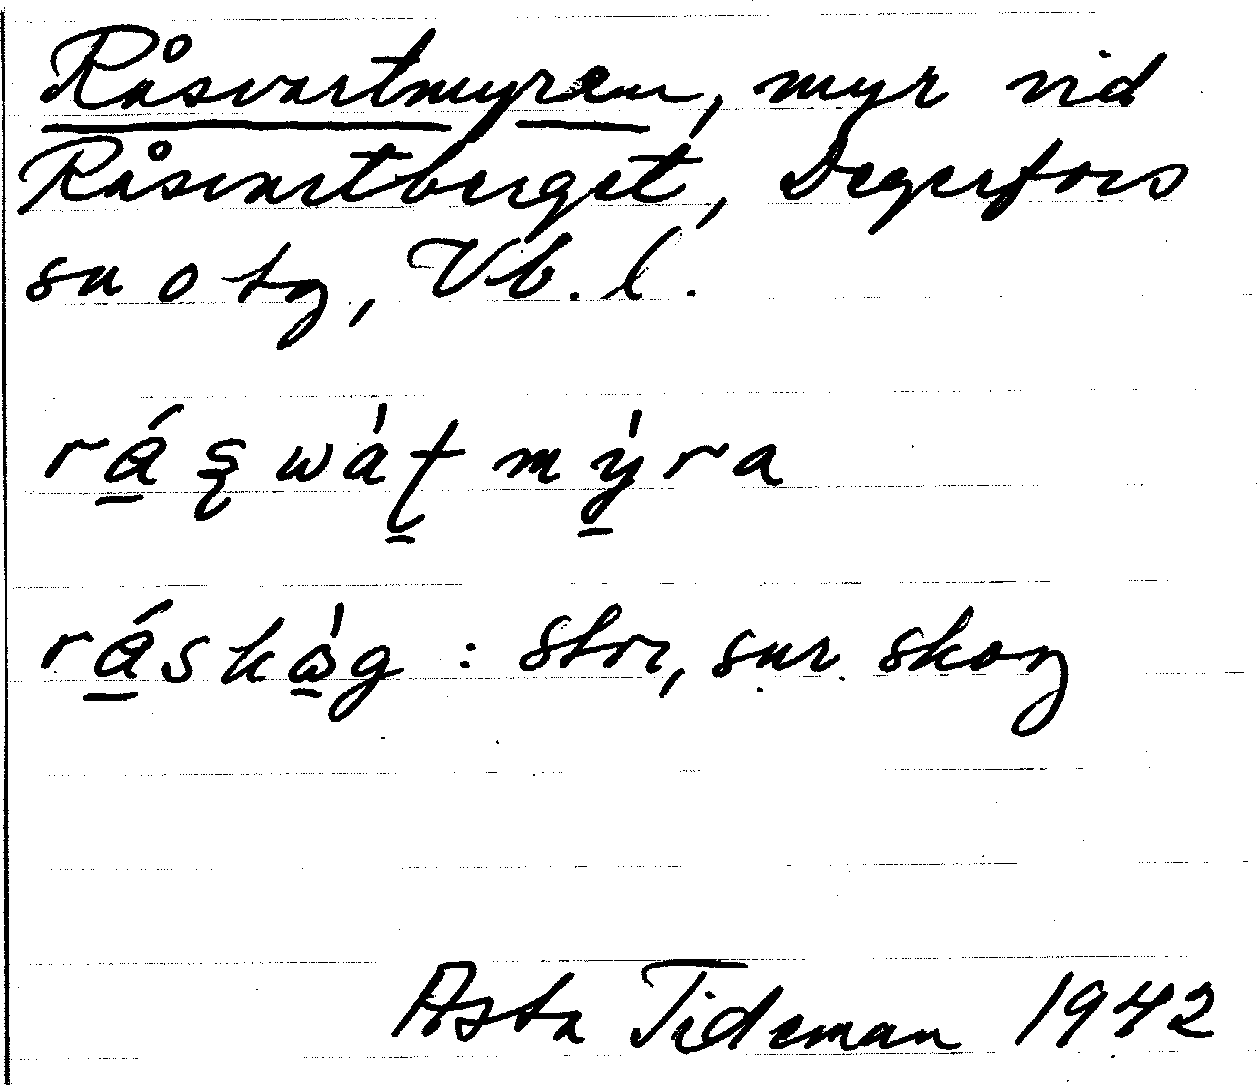 Råsvartmyren, myr vid
Råsvartberget, Degerfors
sn o tg, Vb. l.
rá̱ʂwàʈ mỳ̱ra
rá̱skὼ̱g : stor, sur skog
Asta Tideman 1942